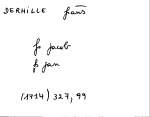 DERHILLE frans
fs jacob
fs jan
(1714) 327, 99